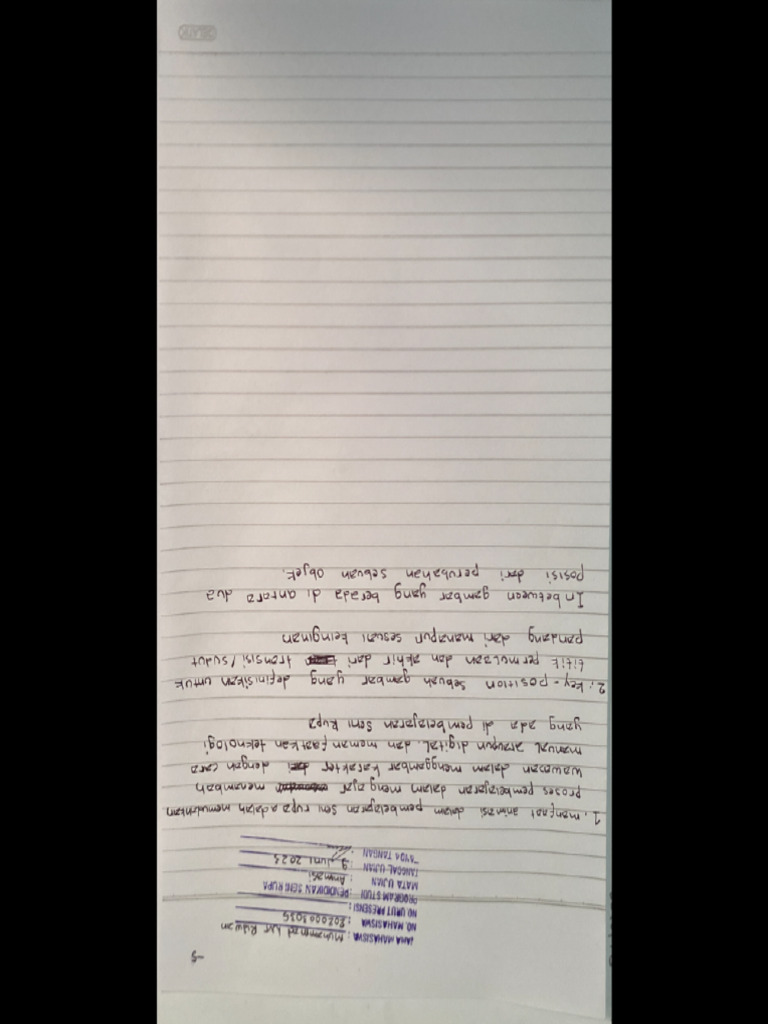 -5
NAMA MAHASISWA : Muhammad Nur Ridwan
NO MAHASISWA : 202000
NO URUT PRESENSI :
PROGRAM STUDI : PENDIDIKAN SENI RUPA
MATA UJIAN : Animasi
TANGGAL UJIAN : 9 Juni 2023
TANDA TANGAN :
1. manfaat animasi dalam pembelajaran seni rupa adalah memudahkan
proses pembelajaran dalam mengajar menambah
wawasan dalam menggambar karakter dengan cara
manual ataupun digital. dan memanfaatkan teknologi
yang ada di pembelajaran seni rupa
2. key-position sebuah gambar yang definisikan untuk
titik permulaan dan akhir dari transisi/sudut
pandang dari manapun sesuai keinginan
Inbetween gambar yang berada di antara dua
posisi dari perubahan sebuah objek.